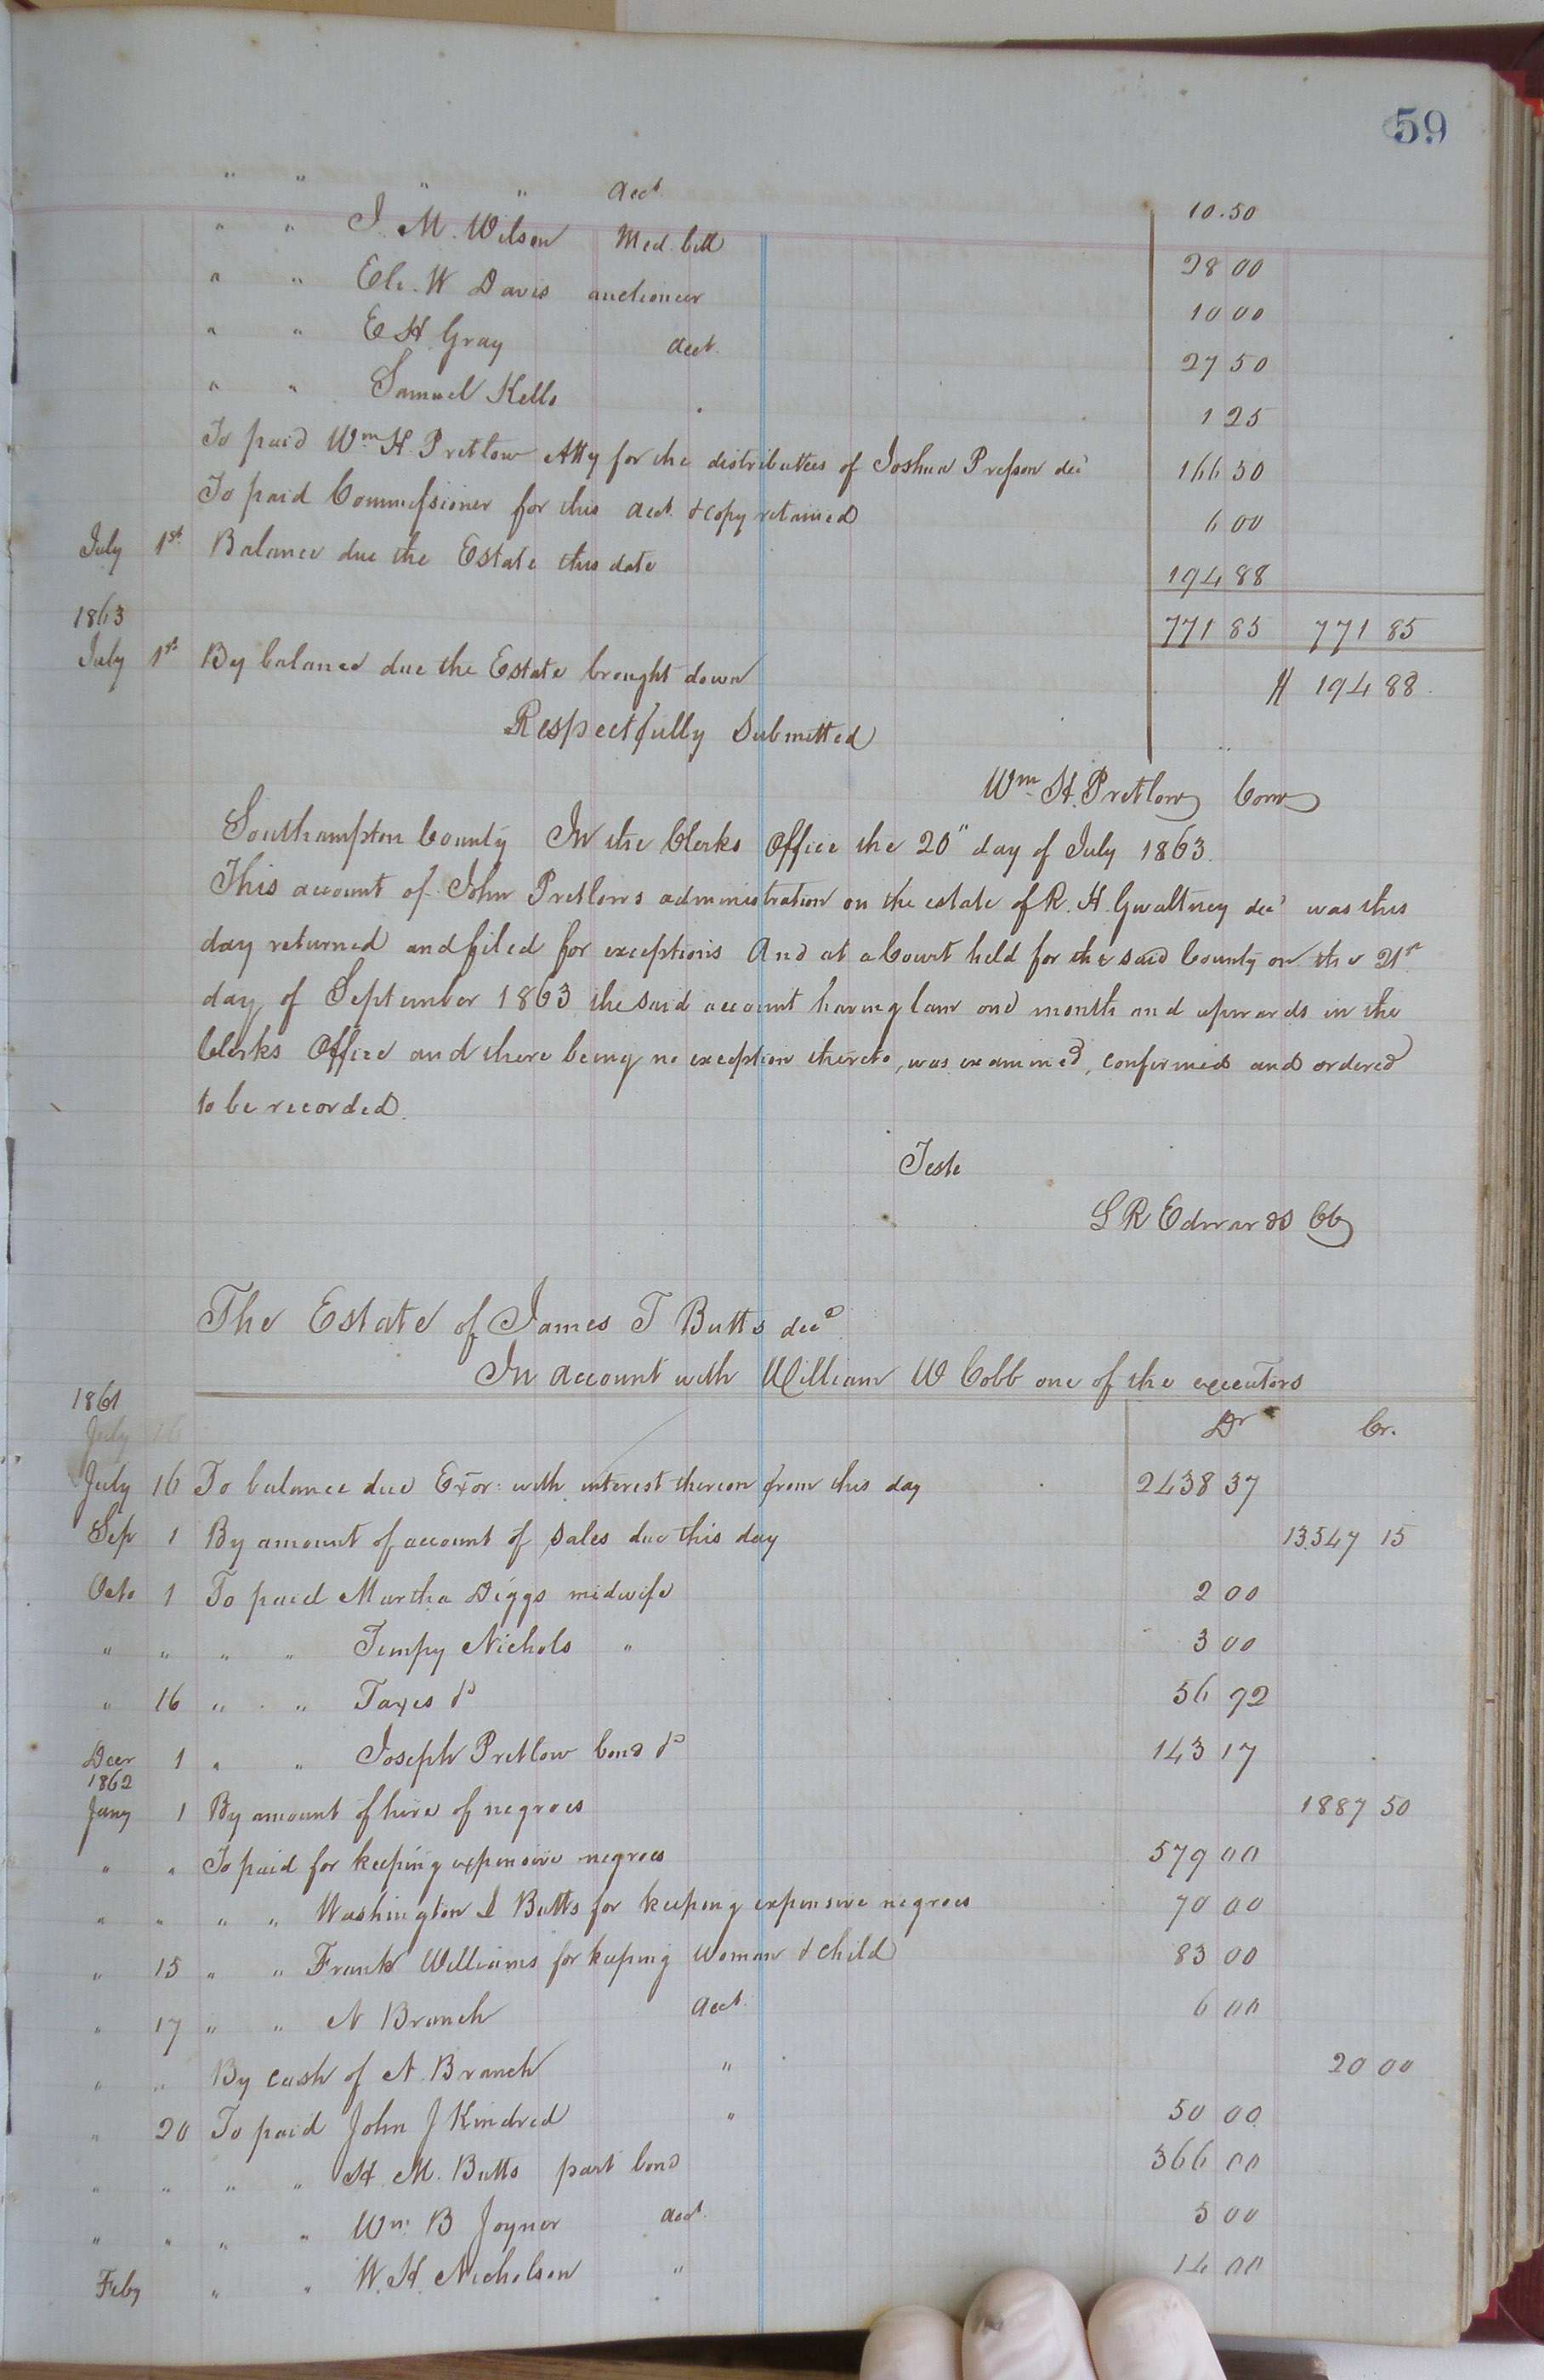 59
" " " " acct. 10.50
" " J. M. Wilson Med. bill 28 00
" " Eli. W Davis auctioneer 10 00
" " E H Gray acct. 27 50
" " Samuel Kello " 1 25
To paid Wm H. Pretlow Atty for the distributees of Joshua Presson decd 166 50
To paid Commissioner for this acct. & copy retained 6 00
July 1st Balance due the Estate this date 194 88
1863 771 85 771 85
July 1st By balance due the Estate brought down $ 194 88
Respectfully Submitted
Wm H. Pretlow Com
Southampton County In the Clerks Office the 20" day of July 1863.
This account of John Pretlows administration on the estate of R. H. Gwaltney decd was this
day returned and filed for exceptions And at a Court held for the said County on the 21st
day of September 1863 the said account having lain one month and upwards in the
Clerks Office and there being no exception thereto, was examined, confirmed and ordered
to be recorded.
Teste
L R Edwards CC
The Estate of James T Butts decd
In account with William W Cobb one of the executors
1861 Dr Cr.
July 16
July 16 To balance due Exor: with interest thereon from this day 2438 37
Sep 1 By amount of account of sales due this day 13.547 15
Octo 1 To paid Martha Diggs midwife 2 00
" " " " Tempy Nichols " 3 00
" 16 " " Taxes do 56 92
Decr 1 " " Joseph Pretlow bond do 143 17
1862
Jany 1 By amount of hire of negroes 1887 50
" " To paid for keeping expensive negroes 579 00
" " " " Washington I Butts for keeping expensive negroes 70 00
" 15 " " Frank Williams for keeping woman & child 83 00
" 17 " " N Branch acct. 6 00
" " By cash of N. Branch " 20 00
" 20 To paid John J Kindred " 50 00
" " " " H. M. Butts part bond 366 00
" " " " Wm. B Joyner acct. 5 00
Feby " " W. H. Nicholson " 14 00